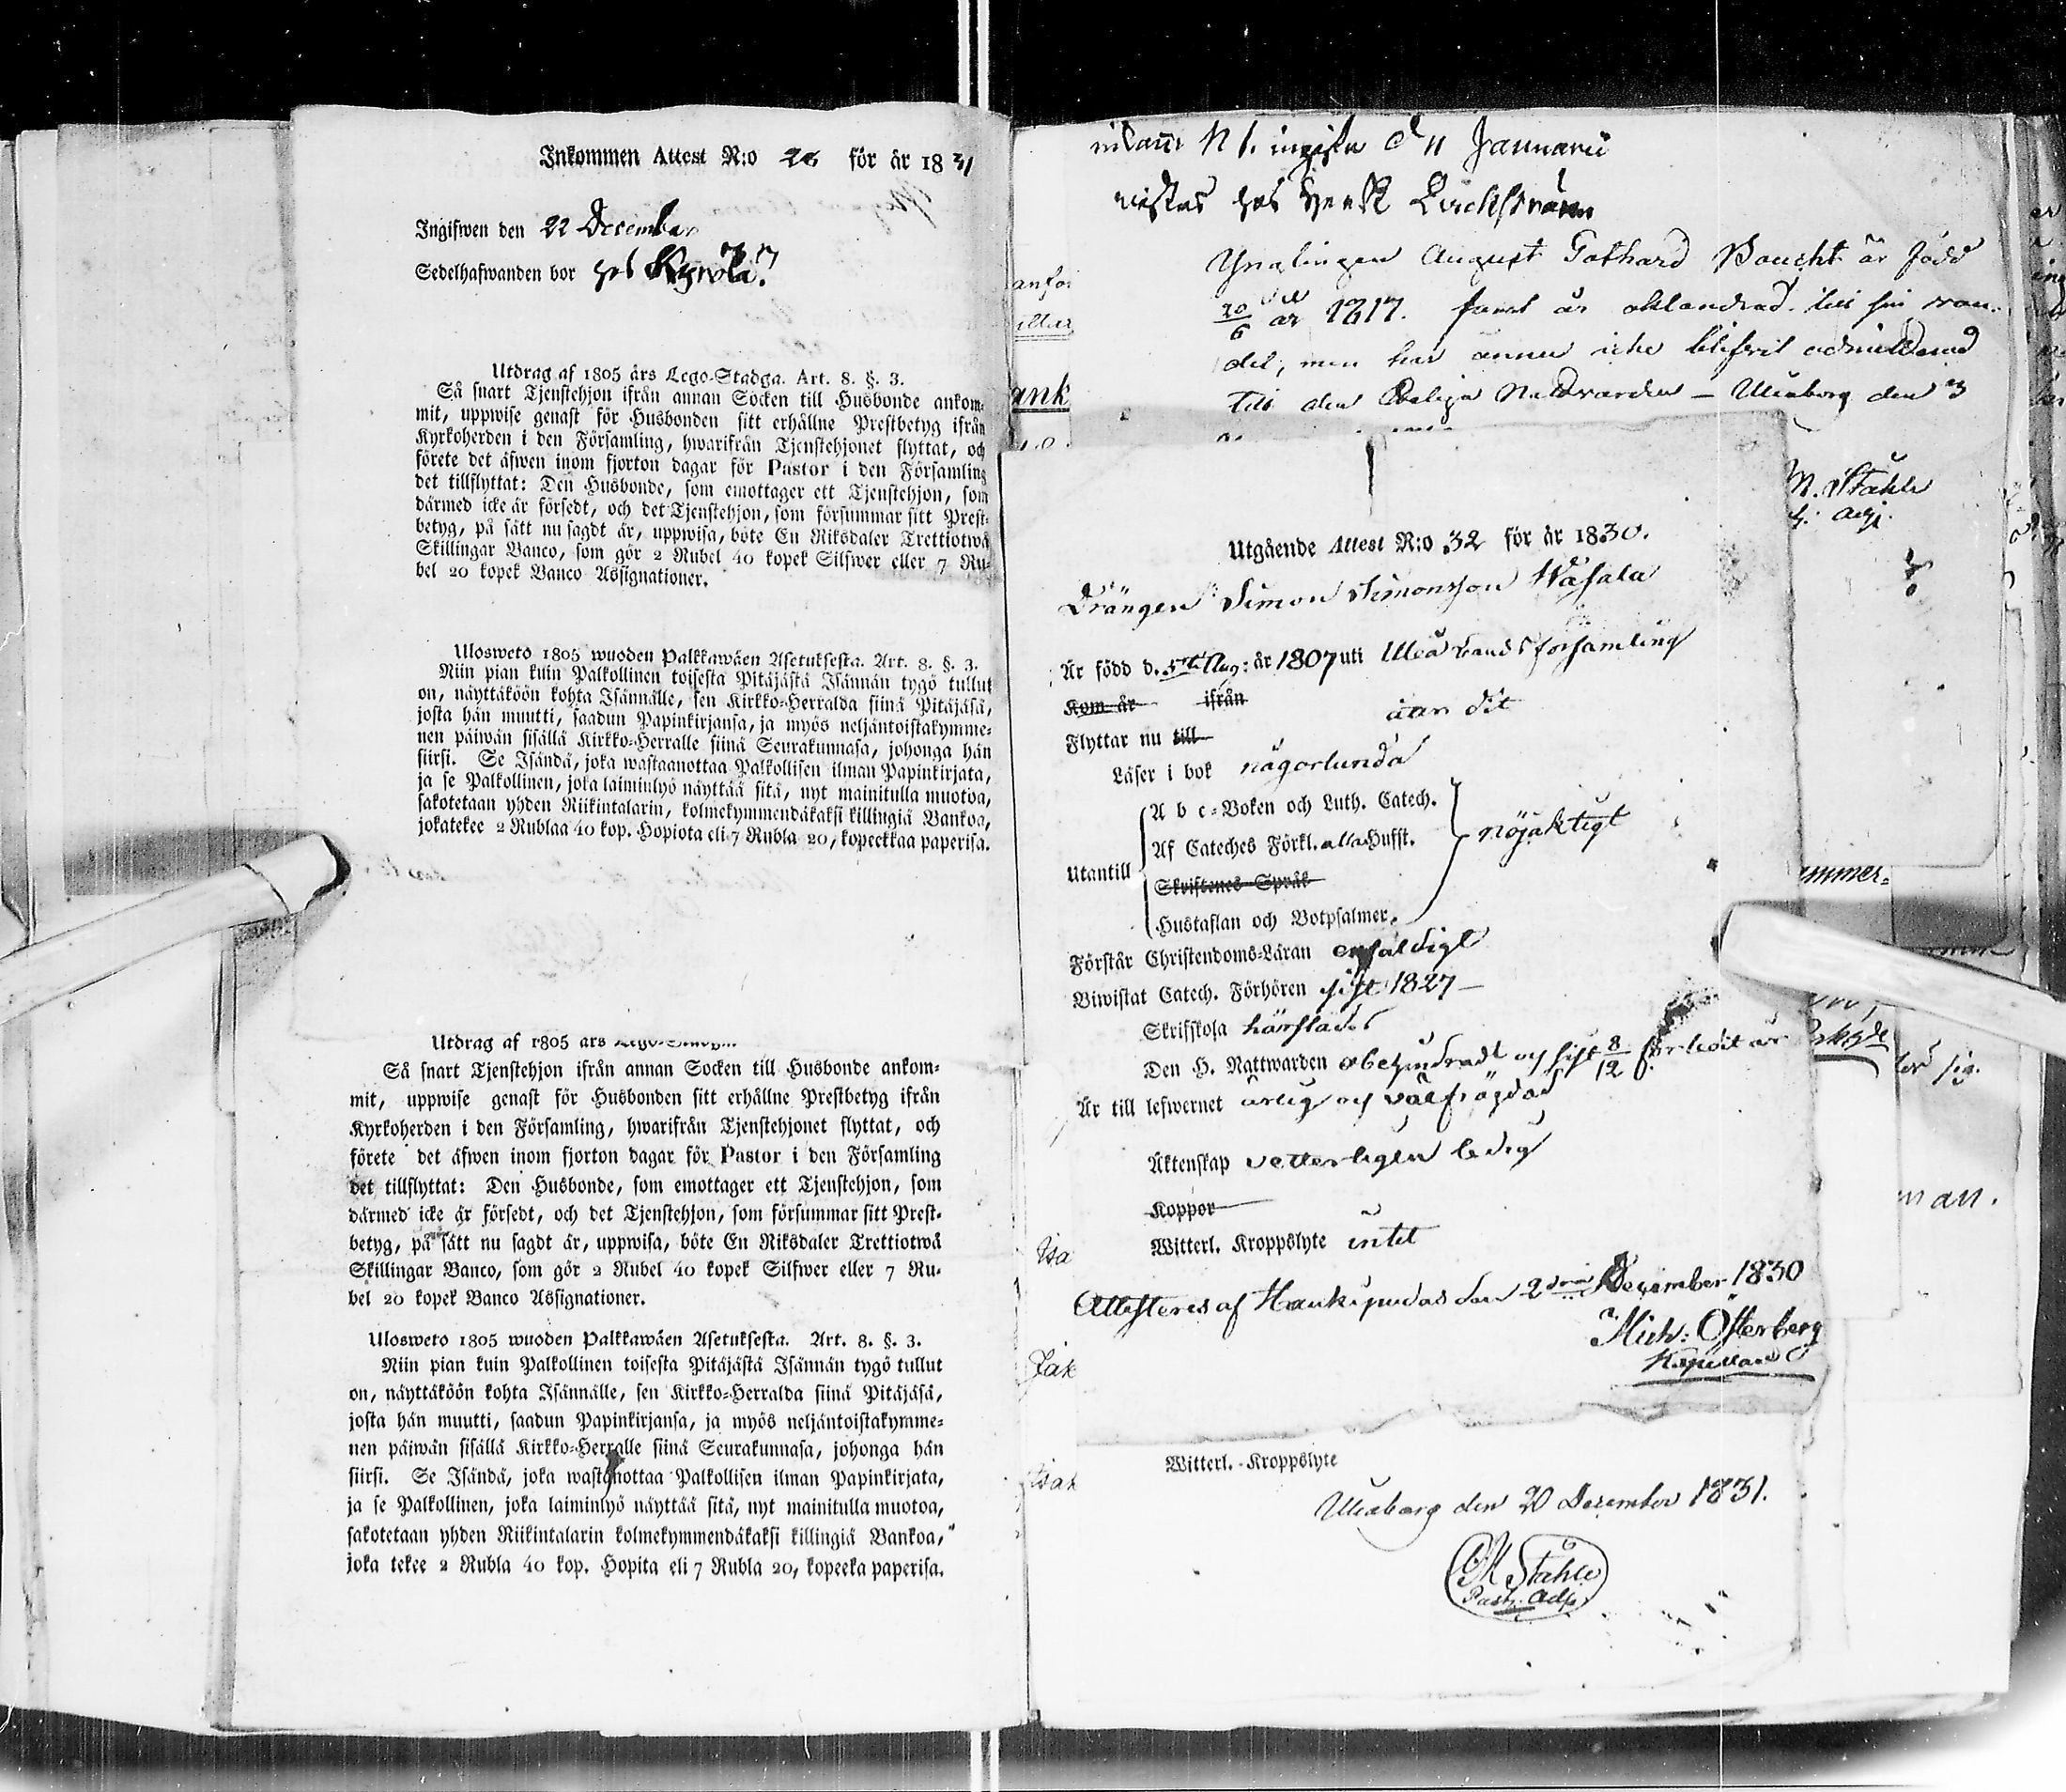 Inkommen Attest N:o 26 för år 1831
Ingifwen den 22 December
Sedelhafwanden bor hos Kyrölä.
Utdrag af 1805 års Lego-Stadga. Art. 8. §. 3.
Så snart Tjenstehjon ifrån annan Socken till Husbonde ankom-
mit, uppwise genast för Husbonden sitt erhållne Prestbetyg ifrån
Kyrkoherden i den Församling, hwarifrån Tjenstehjonet flyttat, och
förete det äfwen inom fjorton dagar för Pastor i den Församling
det tillflyttat: Den Husbonde, som emottager ett Tjenstehjon, som
därmed icke är försedt, och det Tjenstehjon, som försummar sitt Prest-
betyg, på sätt nu sagdt är, uppwisa, böte En Riksdaler Trettiotwå
Skillingar Banco, som gör 2 Rubel 40 kopek Silfwer eller 7 Ru-
bel 20 kopek Banco Assignationer.
Ulosweto 1805 wuoden Palkkawäen Asetuksesta. Art. 8. §. 3.
Niin pian kuin Palkollinen toisesta Pitäjästä Isännän tygö tullut
on, näyttäköön kohta Isännälle, sen Kirkko-Herralda siinä Pitäjäsä,
josta hän muutti, saadun Papinkirjansa, ja myös neljäntoistakymme-
nen päiwän sisällä Kirkko-Herralle siinä Seurakunnasa, johonga hän
siirsi. Se Isändä, joka wastaanottaa Palkollisen ilman Papinkirjata,
ja se Palkollinen, joka laiminlyö näyttää sitä, nyt mainitulla muotoa,
sakotetaan yhden Riikintalarin, kolmekymmendäkaksi killingiä Bankoa,
jokatekee 2 Rublaa 40 kop. Hopiota eli 7 Rubla 20, kopeekkaa paperisa.
Utdrag af 1805 ars
Så snart Tjenstehjon ifrån annan Socken till Husbonde ankom-
mit, uppwise genast för Husbonden sitt erhållne Prestbetyg ifrån
Kyrkoherden i den Församling, hwarifrån Tjenstehjonet flyttat, och
förete det äfwen inom fjorton dagar för Pastor i den Församling
det tillflyttat: Den Husbonde, som emottager ett Tjenstehjon, som
därmed icke är försedt, och det Tjenstehjon, som försummar sitt Prest-
betyg, på sätt nu sagdt är, uppwisa, böte En Riksdaler Trettiotwå
Skillingar Banco, som gör 2 Rubel 40 kopek Silfwer eller 7 Ru-
bel 20 kopek Banco Assignationer.
Ulosweto 1805 wuoden Palkkawäen Asetuksesta. Art. 8. §. 3.
Niin pian kuin Palkollinen toisesta Pitäjästä Isännän tygö tullut
on, näyttäköön kohta Isännälle, sen Kirkko-Herralda siinä Pitäjäsä,
josta hän muutti, saadun Papinkirjansa, ja myös neljäntoistakymme-
nen päiwän sisällä Kirkko-Herralle siinä Seurakunnasa, johonga hän
siirsi. Se Isändä, joka wastanottaa Palkollisen ilman Papinkirjata,
ja se Palkollinen, joka laiminlyö näyttää sitä, nyt mainitulla muotoa,
sakotetaan yhden Riikintalarin kolmekymmendäkaksi killingiä Bankoa,
joka tekee 2 Rubla 40 kop. Hopita eli 7 Rubla 20, kopeeka paperisa.
N 1. ingifn d 11 Januarii
wistas hos Herr
Ynglingen August Gothard Baucht är född
20/6 år 1817. samt är oklandrad till sin wan-
del, men har ännu icke blifvit admitterad
till den Heliga Nattvarden - Uleåborg den 3
M. Ståhle
Adj.
Utgående Attest N:o 32 för år 1830.
Drängen Simon Simonsson Wäsala
Är född d. 5te Aug: år 1807 uti Uleå Lands församling
Kom år ifrån
Flyttar nu till åter dit
Läser i bok någorlunda
Utantill
A b c-Boken och Luth. Catech.
Af Cateches Förkl. alla Hufst. nöjaktigt
Skriftenes Språk
Hustaflan och Botpsalmer.
Förstår Christendoms-Läran enfaldigt
Biwistat Catech. Förhören sist 1827
Skrifskola härstädes
Den H. Nattwarden obehindradt och sist 8/12 förledit år
Är till lefwernet ärlig och välfrägdad
Äktenskap vetterligen ledig
Koppor
Witterl. Kroppslyte intet
Attesteras af Haukipudas den 2dra December 1830
Mich: Österberg
Kapellan
Witterl. Kroppslyte
Uleåborg den 20 December 1831.
M Ståhle
Past. Adj.